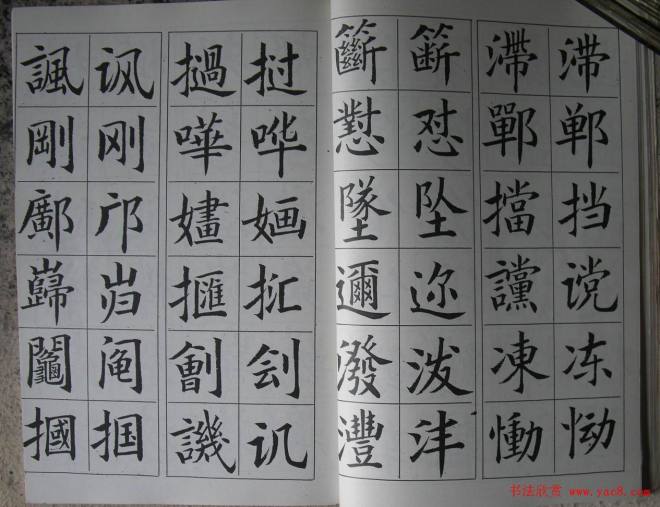 諷 讽 撾 挝 籪 簖 滯 滞
剛 刚 嘩 哗 懟 怼 鄲 郸
鄺 邝 嫿 婳 墜 坠 擋 挡
巋 岿 擓 㧟 邇 迩 讜 谠
鬮 阄 劊 刽 潑 泼 凍 冻
摑 掴 譏 讥 灃 沣 慟 恸
书法欣赏 www.yac8.com